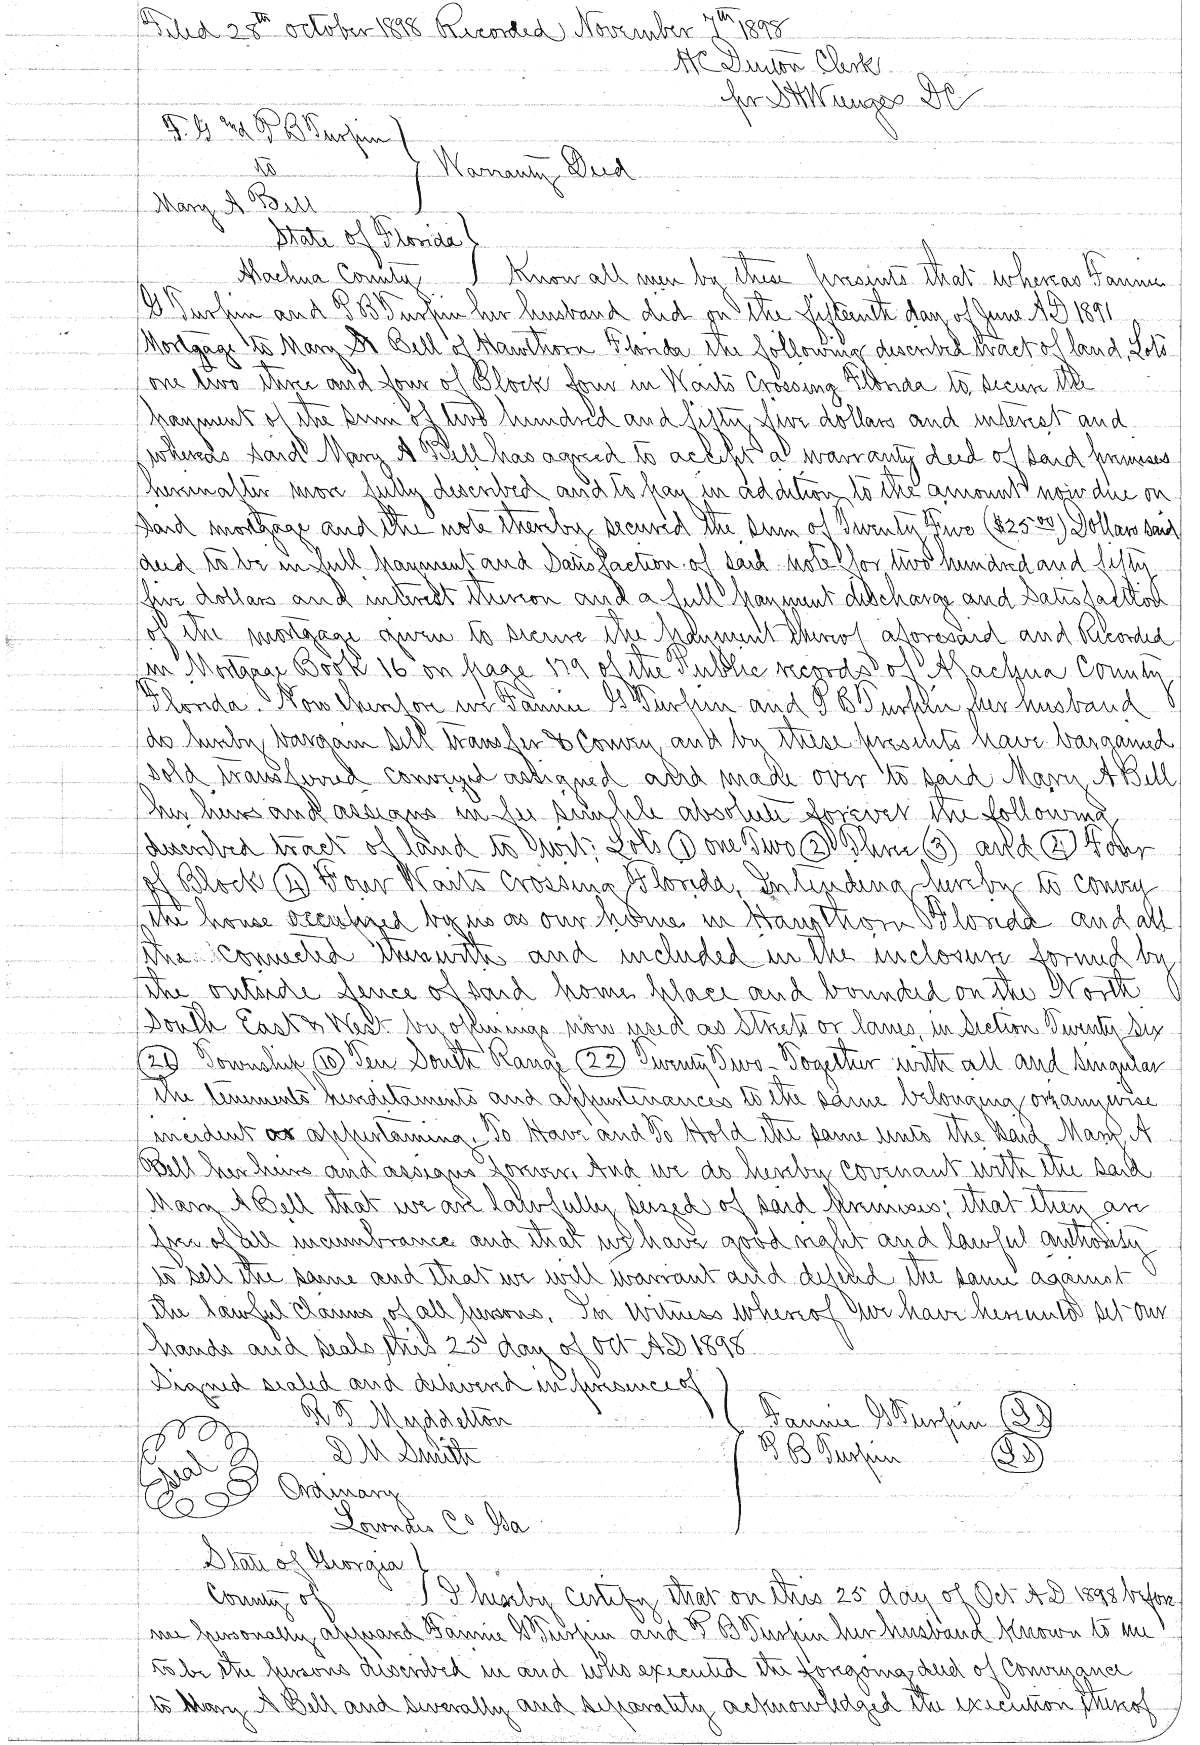 Filed 28th October 1898 Recorded November 7th 1898
H C Denton Clerk
for S H Wienges DC
F. G and P B Turpin
to
Warranty Deed
Mary A Bell
State of Florida
Alachua County Know all men by these presents that whereas Fannie
G Turpin and P B Turpin her husband did on the fifteenth day of June AD 1891
Mortgage to Mary A Bell of Hawthorn Florida the following described tract of land, Lots
one two three and four of Block four in Waits Crossing Florida to secure the
payment of the sum of two hundred and fifty five dollars and interest and
whereas said Mary A Bell has agreed to accept a warranty deed of said premises
hereinafter more fully described and to pay in addition to the amount now due on
said mortgage and the note thereby secured the sum of Twenty Five ($25.00) Dollars said
deed to be in full payment and Satisfaction of said note for two hundred and fifty
five dollars and interest thereon and a full payment discharge and Satisfaction
of the mortgage given to secure the payment thereof aforesaid and Recorded
in Mortgage Book 16 on page 179 of the Public records of Alachua County
Florida. Now therefore we Fannie G Turpin and P B Turpin her husband
do hereby bargain sell transfer & convey and by these presents have bargained
sold transferred conveyed assigned and made over to said Mary A Bell
her heirs and assigns in fee simple absolute forever the following
described tract of land to wit: Lots (1) one Two (2) Three (3) and (4) Four
of Block (4) Four Waits Crossing Florida, Intending hereby to convey
the house occupied by us as our home in Hawthorn Florida and all
the connected therewith and included in the inclosure formed by
the outside fence of said home place and bounded on the North
South East & West by openings now used as Streets or lanes, in Section Twenty Six
(26) Township (10) Ten South Range (22) Twenty Two - Together with all and singular
the tenements hereditaments and appurtenances to the same belonging or anywise
incident or appertaining. To Have and To Hold the same unto the said Mary A
Bell her heirs and assigns forever. And we do hereby covenant with the said
Mary A Bell that we are lawfully seized of said premises; that they are
free of all incumbrance and that we have good right and lawful authority
to sell the same and that we will warrant and defend the same against
the lawful claims of all persons. In Witness whereof we have hereunto set our
hands and seals this 25 day of Oct AD 1898
Signed sealed and delivered in presence of
R T Myddelton Fannie G Turpin (LS)
D M Smith P B Turpin (LS)
Seal
Ordinary
Lowndes Co Ga
State of Georgia
County of I hereby certify that on this 25 day of Oct AD 1898 before
me personally appeard Fannie G Turpin and P B Turpin her husband Known to me
to be the persons described in and who executed the foregoing deed of Conveyance
to Mary A Bell and severally and separately acknowledged the execution thereof